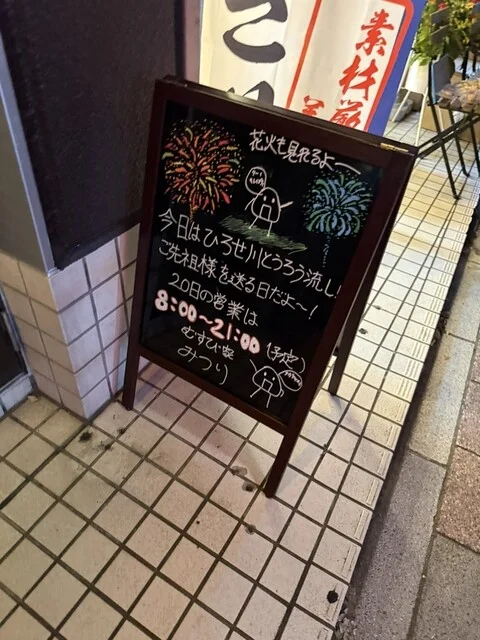 素材厳
花火も見れるよー
今日はひろせ川とうろう流し!
ご先祖様を送る日だよ〜!
20日の営業は
8:00〜21:00(予定)
むすび家
みつり